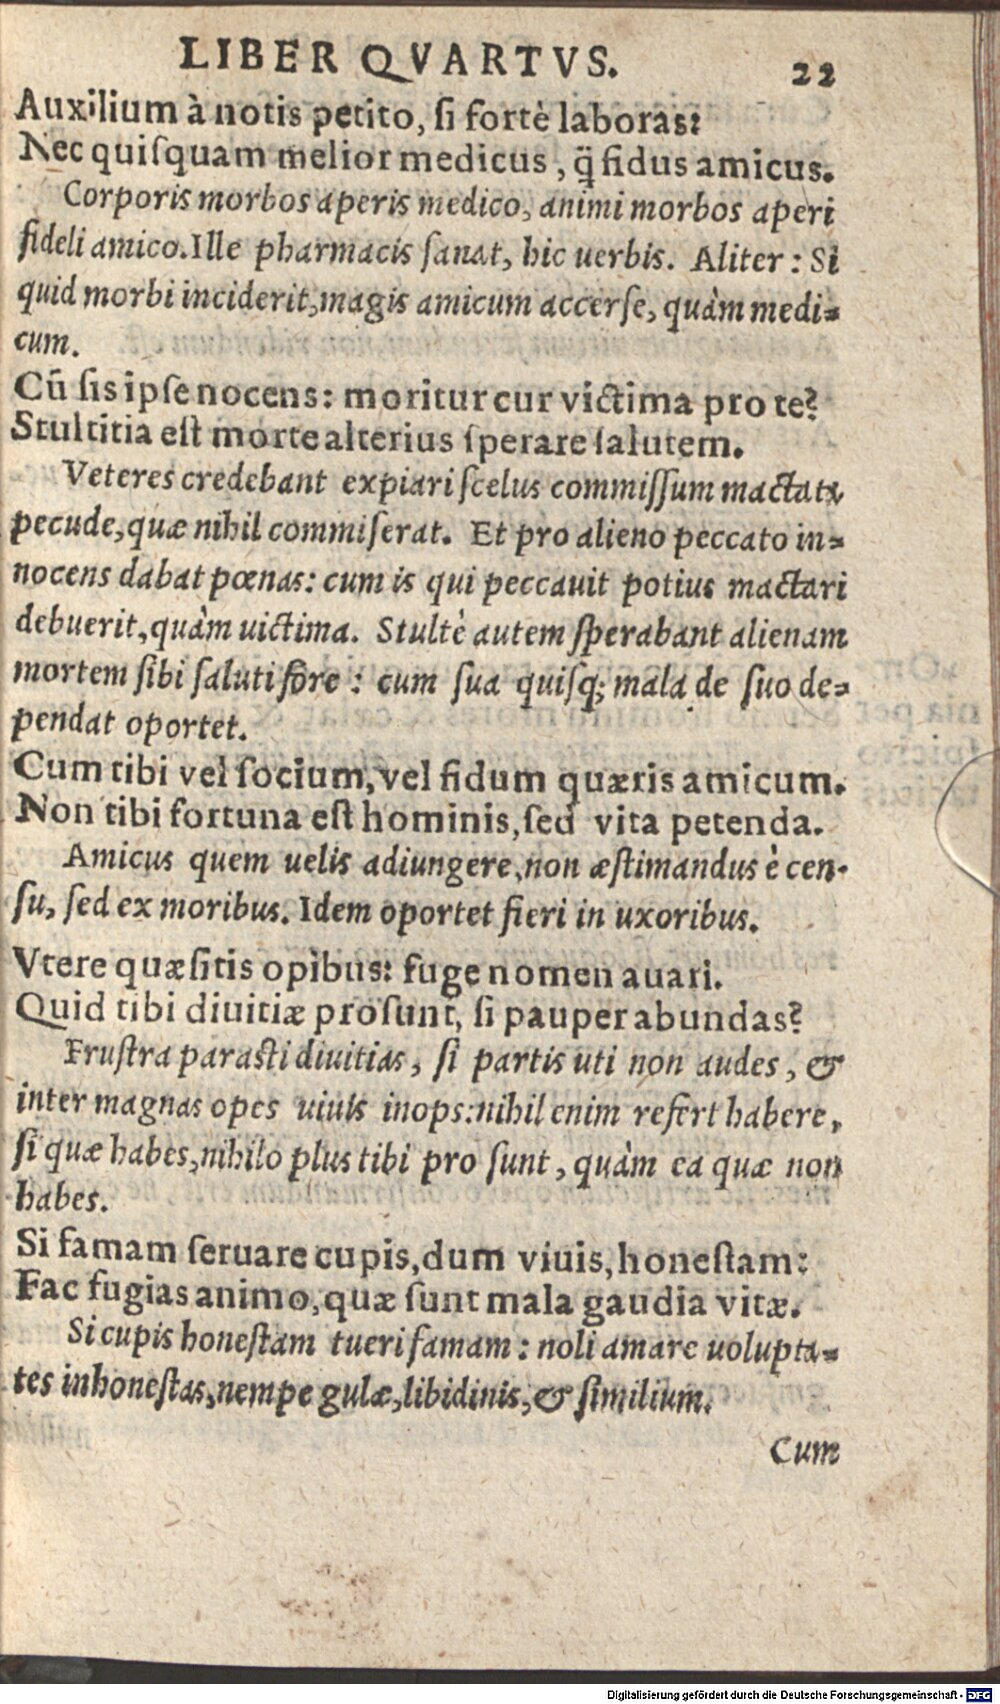 LIBER QVARTVS. 22
Auxilium à notis petito, ſi fortè laboras:
Nec quiſquam melior medicus, q̃ fidus amicus.
Corporis morbos aperis medico, animi morbos aperi
fideli amico. Ille pharmacis ſanat, hic uerbis. Aliter: Si
quid morbi inciderit, magis amicum accerſe, quàm medi=
cum.
Cũ ſis ipſe nocens: moritur cur victima pro te?
Stultitia eſt morte alterius ſperare ſalutem.
Veteres credebant expiari ſcelus commiſſum mactata
pecude, quæ nihil commiſerat. Et pro alieno peccato in=
nocens dabat pœnas: cum is qui peccauit potius mactari
debuerit, quàm uictima. Stultè autem ſperabant alienam
mortem ſibi ſaluti fore: cum ſua quiſq; mala de ſuo de=
pendat oportet.
Cum tibi vel ſocium, vel fidum quæris amicum.
Non tibi fortuna eſt hominis, ſed vita petenda.
Amicus quem uelis adiungere, non æſtimandus è cen-
ſu, ſed ex moribus. Idem oportet fieri in uxoribus.
Vtere quæſitis opibus: fuge nomen auari.
Quid tibi diuitiæ proſunt, ſi pauper abundas?
Fruſtra paraſti diuitias, ſi partis uti non audes, &
inter magnas opes uiuis inops: nihil enim refert habere,
ſi quæ habes, nihilo plus tibi pro ſunt, quàm ea quæ non
habes.
Si famam ſeruare cupis, dum viuis, honeſtam:
Fac fugias animo, quæ ſunt mala gaudia vitæ.
Si cupis honeſtam tueri famam: noli amare uolupta=
tes inhoneſtas, nempe gulæ, libidinis, & ſimilium.
Cum
Digitalisierung gefördert durch die Deutsche Forschungsgemeinschaft - DFG